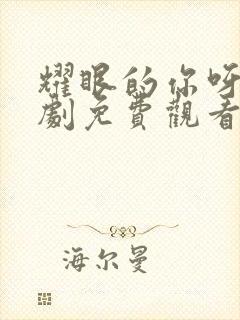 耀眼的你呀
劇免費觀看
海尔曼